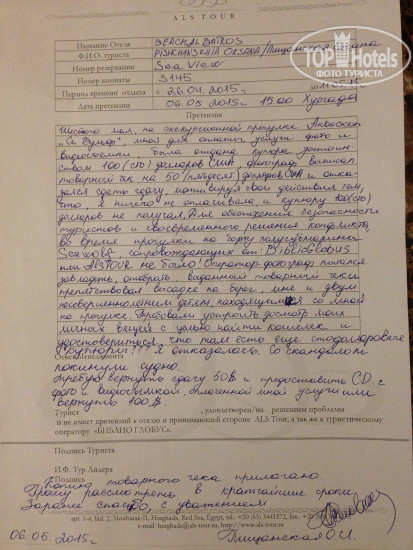 ALS TOUR
ТОПHotels
ФОТО ТУРИСТА
Название Отеля BEACH ALBATROS
Ф.И.О. туриста PISHCHANSKAIA OKSANA/Пищанская Оксана
Номер резервации Sea View
Номер комнаты 3145
Период времени отдыха с 26.04.2015г. до 11.05.15
Дата претензии 06.05 2015г. 15.00 Хургада
Претензия
Шестого мая, на экскурсионной прогулке Акваскоп
"Си Вульф", мной для оплаты услуги фото и
видеосъемки, была отдана купюра достоин-
ством 100 (сто) долларов США, фотограф выписал
товарный чек на 50 (пятьдесят) долларов США и отка-
зался сдать сдачу, мотивируя свои действия тем,
что, я ничего не оплачивала, и купюру 100 (сто)
долларов не получал. Для обеспечения безопасности
туристов и своевременного решения конфликта,
во время прогулки на борту полусубмарины
Seawolf, сопровождающих от BiblioGlobus
или ALSTOUR не было! Оператор-фотограф пытался
завладеть, отобрать выданный товарный чек и
препятствовал высадке на берег, мне и двум
несовершеннолетним детям, находящимся со мной
на прогулке. Требовали устроить досмотр моих
личных вещей с целью найти кошелек и
удостовериться что там есть еще стодолларовые
купюры!!! Я отказалась. Со скандалом
покинули судно.
Требую вернуть сдачу 50$ и предоставить CD с
фото и видеосъемкой, оплаченной мной услуги или
вернуть 100$.
Турист , удовлетворен/на решением проблемы
и не имеет претензий к отелю и принимающей стороне ALS Tour, а так же к туристическому
оператору «БИБЛИО ГЛОБУС».
Подпись Туриста
И.Ф. Тур Лидера
Подпись
Копию товарного чека прилагаю
Прошу рассмотреть в кратчайшие сроки.
Заранее спасибо, с уважением
apt. 1-4, bld. 2, Moubarak-II, Hurghada, Red Sea, Egypt, tel.: +20 (65) 3441572, fax:
e-mail: hurghada@als-tour.ru, http://www.als-tour.ru
06.05 2015г Пищанская О.И.